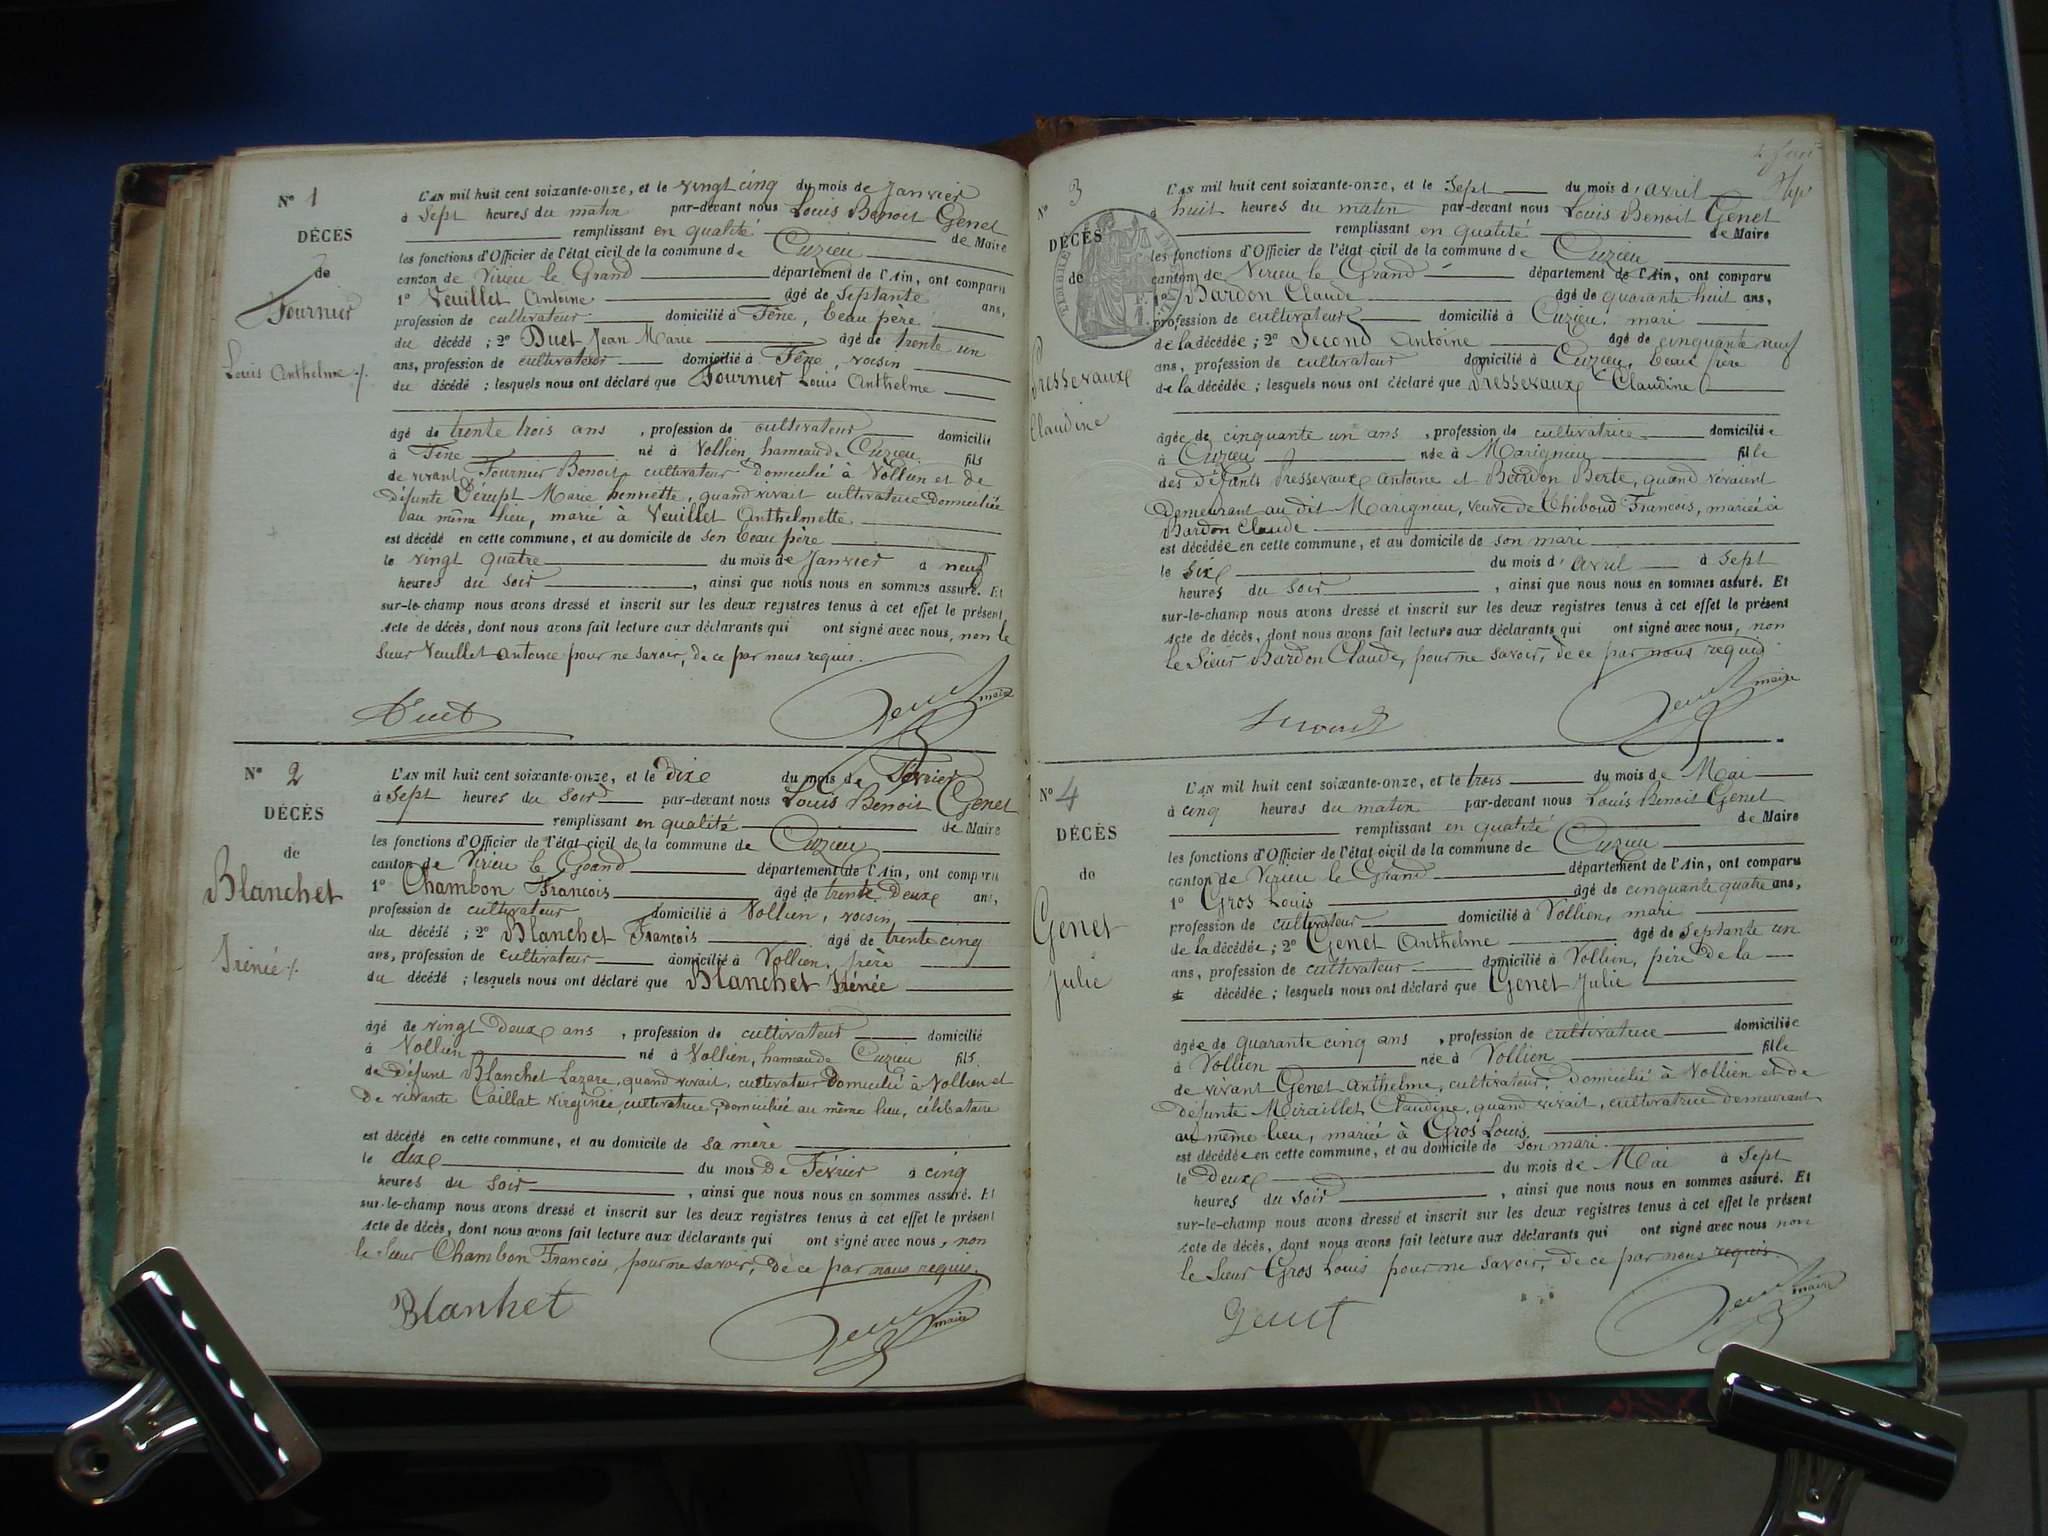 N° 1
DÉCÈS
de
Fournier
Louis Anthelme
L'AN mil huit cent soixante-onze, et le vingt cinq du mois de Janvier
à Sept heures du matin par-devant nous Louis Benoit Genet
remplissant en qualité de Maire
les fonctions d'Officier de l'état civil de la commune de Cuzieu
canton de Virieu le Grand département de l'Ain, ont comparu
1° Veuillet Antoine âgé de Septante ans,
profession de cultivateur domicilié à Fêne, beau père
du décédé ; 2° Duet Jean Marie âgé de trente un
ans, profession de cultivateur domicilié à Fêne, voisin
du décédé ; lesquels nous ont déclaré que Fournier Louis Anthelme
âgé de trente trois ans , profession de cultivateur domicilié
à Fêne né à Vollien, hameau de Cuzieu fils
de vivant Fournier Benoit cultivateur Domicilié à Vollien et de
défunte Marie henriette, quand vivait cultivatrice Domiciliée
au même lieu, marié à Veuillet Anthelmette
est décédé en cette commune, et au domicile de son beau père
le vingt quatre du mois de Janvier à neuf
heures du soir , ainsi que nous nous en sommes assuré. Et
sur-le-champ nous avons dressé et inscrit sur les deux registres tenus à cet effet le présent
Acte de décès, dont nous avons fait lecture aux déclarants qui ont signé avec nous, non le
Sieur Veuillet Antoine pour ne savoir, de ce par nous requis.
Duet Genet maire
N° 2
DÉCÈS
de
Blanchet
Irénée
L'AN mil huit cent soixante-onze, et le Dixe du mois de Février
à Sept heures du Soir par-devant nous Louis Benoit Genet
remplissant en qualité de Maire
les fonctions d'Officier de l'état civil de la commune de Cuzieu
canton de Virieu le Grand département de l'Ain, ont comparu
1° Chambon Francois âgé de trente Deuxe ans,
profession de cultivateur domicilié à Vollien, voisin
du décédé ; 2° Blanchet Francois âgé de trente cinq
ans, profession de cultivateur domicilié à Vollien, frère
du décédé ; lesquels nous ont déclaré que Blanchet Irénée
âgé de vingt Deuxe ans , profession de cultivateur domicilié
à Vollien né à Vollien, hameau de Cuzieu fils
de défunt Blanchet Lazare, quand vivait, cultivateur Domicilié à Vollien et
De vivante Caillat virginie, cultivatrice, Domiciliée au même lieu, célibataire
est décédé en cette commune, et au domicile de sa mère
le dixe du mois De Février à cinq
heures du soir , ainsi que nous nous en sommes assuré. Et
sur-le-champ nous avons dressé et inscrit sur les deux registres tenus à cet effet le présent
Acte de décès, dont nous avons fait lecture aux déclarants qui ont signé avec nous, non
le Sieur Chambon Francois, pour ne savoir, de ce par nous requis.
Blanhet Genet maire
N° 3
DÉCÈS
de
Pressevaux
Claudine
L'AN mil huit cent soixante-onze, et le Sept du mois d'avril
à huit heures du matin par-devant nous Louis Benoit Genet
remplissant en qualité de Maire
les fonctions d'Officier de l'état civil de la commune de Cuzieu
canton de Virieu le Grand département de l'Ain, ont comparu
1° Bardon Claude âgé de quarante huit ans,
profession de cultivateur domicilié à Cuzieu, mari
de la décédée ; 2° Second Antoine âgé de cinquante neuf
ans, profession de cultivateur domicilié à Cuzieu, beau frère
de la décédée ; lesquels nous ont déclaré que Pressevaux Claudine
âgée de cinquante un ans , profession de cultivatrice domiciliée
à Cuzieu née à Marignieu fille
des Défunts Pressevaux Antoine et Bardon Berte, quand vivaient
Demeurant au dit Marignieu, veuve de Thiboud Francois, mariée à
Bardon Claude
est décédée en cette commune, et au domicile de son mari
le Sixe du mois d'avril à Sept
heures du soir , ainsi que nous nous en sommes assuré. Et
sur-le-champ nous avons dressé et inscrit sur les deux registres tenus à cet effet le présent
Acte de décès, dont nous avons fait lecture aux déclarants qui ont signé avec nous, non
le Sieur Bardon Claude, pour ne savoir, de ce par nous requis
Second Genet maire
N° 4
DÉCÈS
de
Genet
Julie
L'AN mil huit cent soixante-onze, et le trois du mois de Mai
à cinq heures du matin par-devant nous Louis Benoit Genet
remplissant en qualité de Maire
les fonctions d'Officier de l'état civil de la commune de Cuzieu
canton de Virieu le Grand département de l'Ain, ont comparu
1° Gros Louis âgé de cinquante quatre ans,
profession de cultivateur domicilié à Vollien, mari
de la décédée ; 2° Genet Anthelme âgé de Septante un
ans, profession de cultivateur domicilié à Vollien, père De la
décédée ; lesquels nous ont déclaré que Genet Julie
âgée de quarante cinq ans , profession de cultivatrice domiciliée
à Vollien née à Vollien fille
de vivant Genet Anthelme, cultivateur, Domicilié à Vollien et de
défunte Miraillet Claudine, quand vivait, cultivatrice demeurant
au même lieu, mariée à Gros Louis
est décédée en cette commune, et au domicile de son mari
le Deuxe du mois de Mai à Sept
heures du soir , ainsi que nous nous en sommes assuré. Et
sur-le-champ nous avons dressé et inscrit sur les deux registres tenus à cet effet le présent
Acte de décès, dont nous avons fait lecture aux déclarants qui ont signé avec nous non
le Sieur Gros Louis pour ne savoir, de ce par nous requis.
Genet Genet maire